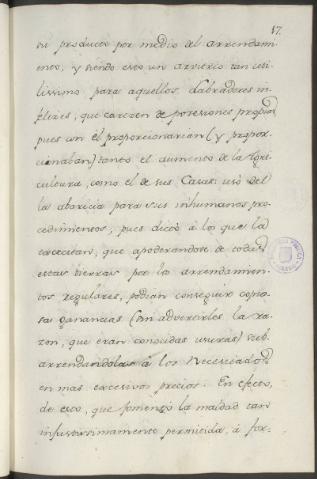 17.
su producto por medio del arrendami-
ento, y siendo esto un arvitrio tan util-
lissimo para aquellos Labradores in-
felices, que carecen de posesiones propias
pues con el proporcionarian (y propor-
cionaban) tanto el aumento de la Agri-
cultura, como el de sus Casas: usó del
la abaricia para sus inhumanos pro-
cedimientos, pues dictó á los que la
exercitan, que apoderandose de todas
estas tierras por la arrendamien-
tos regulares, podian conseguir copio-
sas ganancias (sin advertirles la ra-
zon, que eran conocidas usuras) sub-
arrendandolas á los Necesitados
en mas excesivos precios. En efecto,
de esto, que fomentó la maldad tan
injustissimamente permitida, á for-